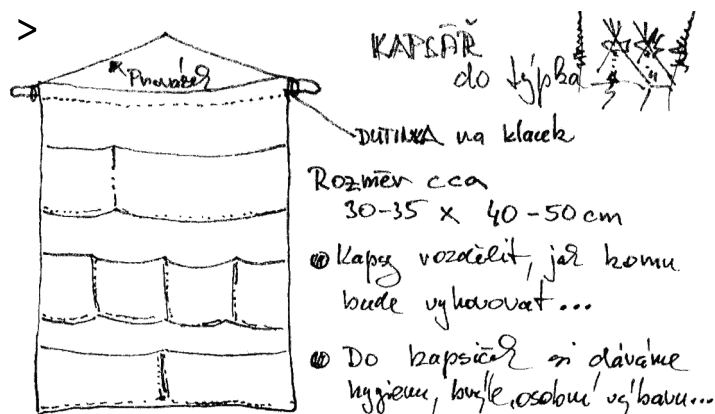 >
KAPSÁŘ
do týpka
Provázek
DUTINKA na klacek
Rozměr cca
30-35 x 40-50 cm
Kapsy rozdělit, jak komu
bude vyhovovat...
Do kapsiček si dáváme
hygienu, brýle, osobní výbavu...